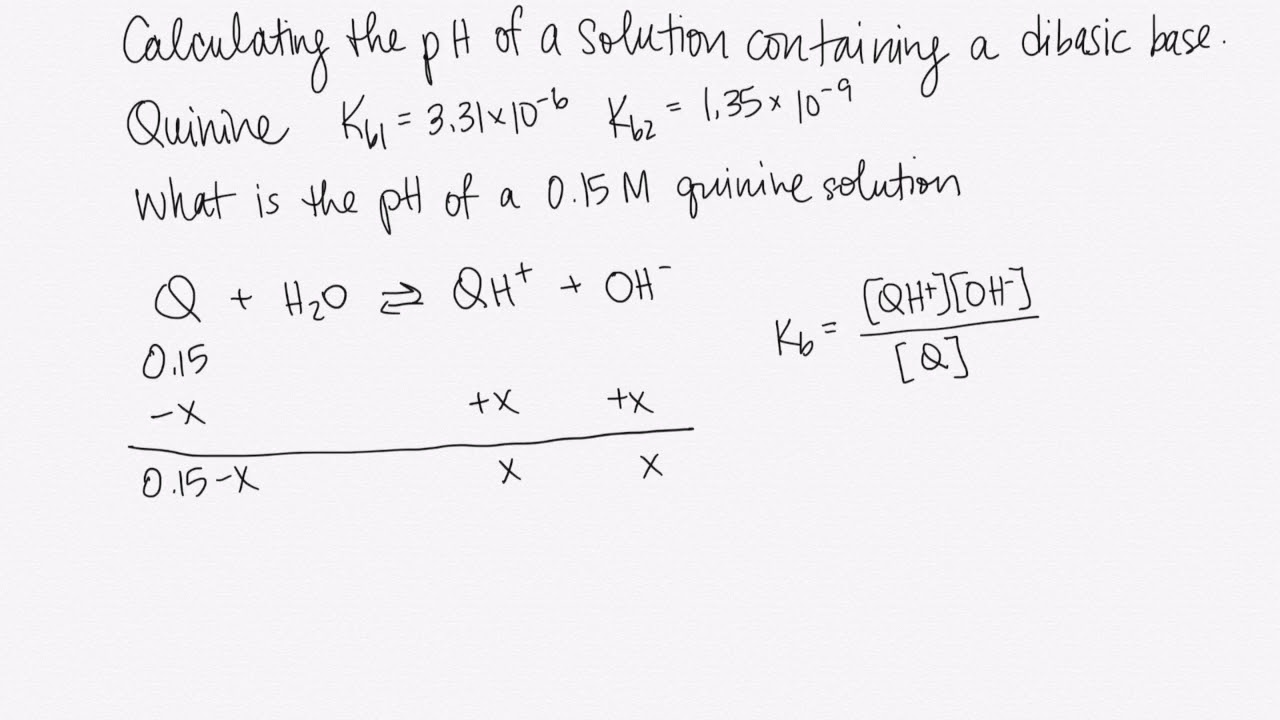 Calculating the pH of a solution containing a dibasic base.
Quinine Kb1 = 3.31 × 10⁻⁶ Kb2 = 1.35 × 10⁻⁹
What is the pH of a 0.15 M quinine solution
Q + H₂O ⇌ QH⁺ + OH⁻
0.15
-x +x +x
0.15-x x x
Kb = [QH⁺][OH⁻] / [Q]